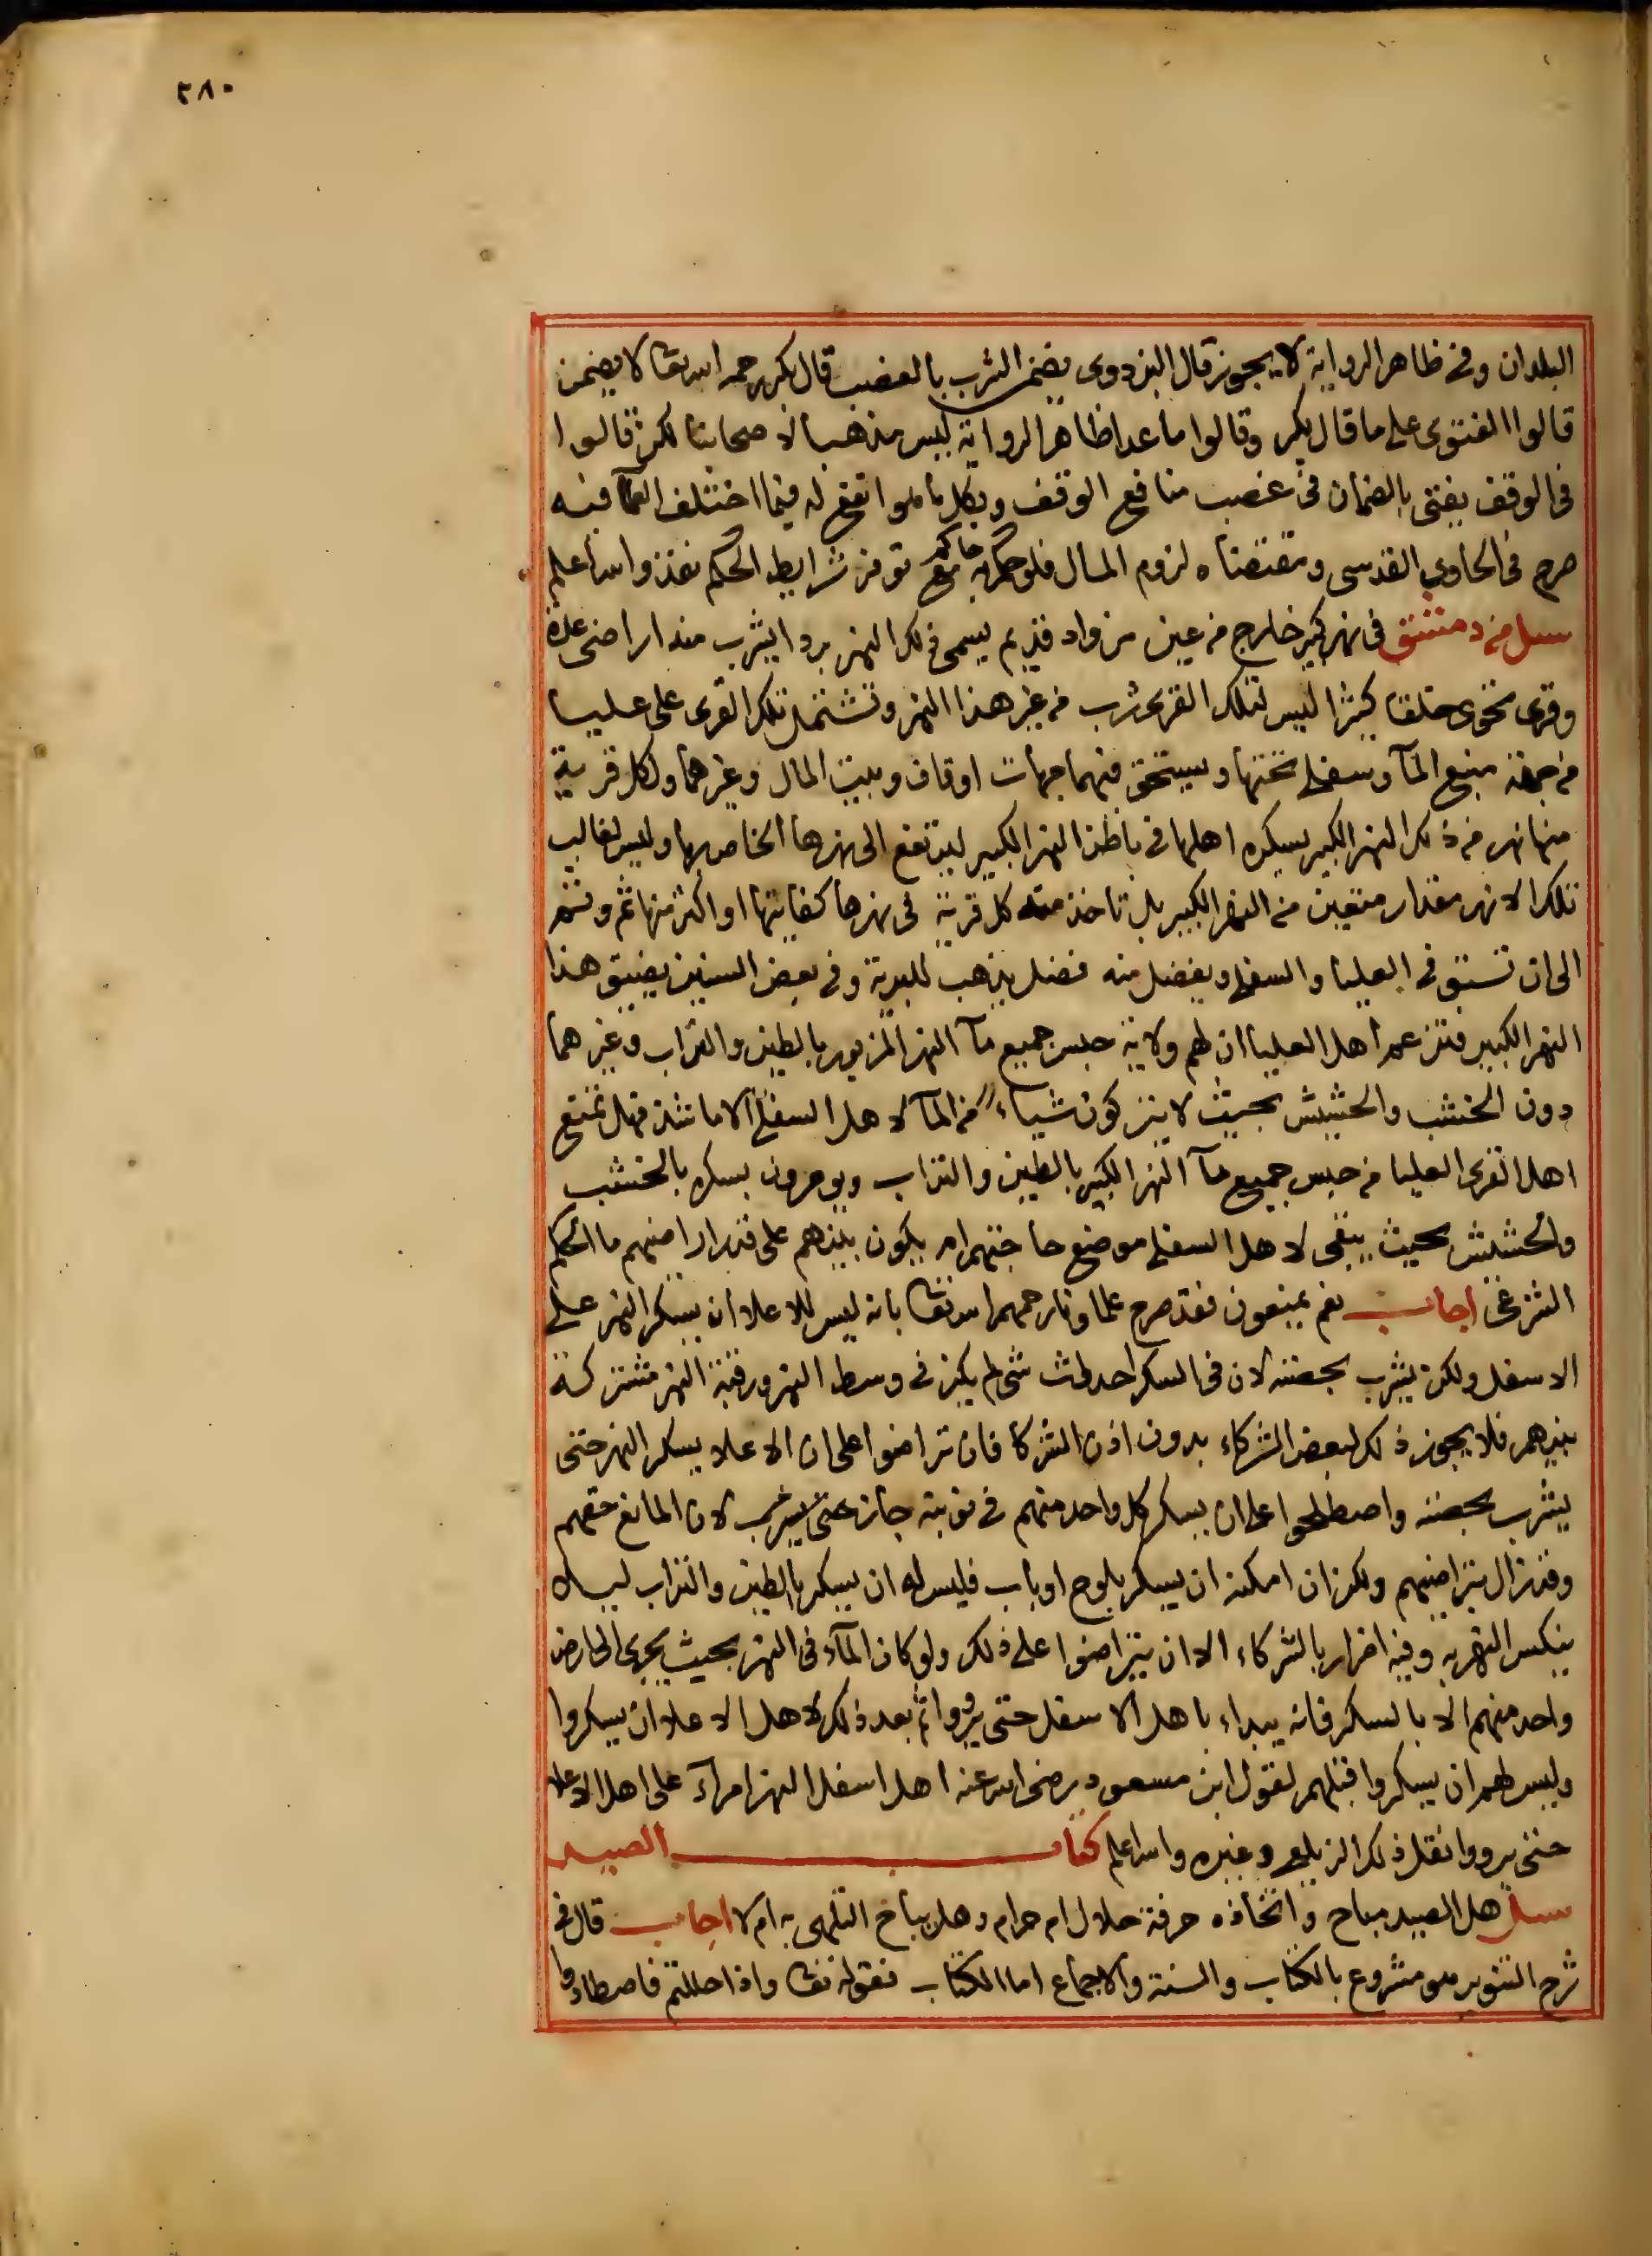 ٢٨٠
البلدان وفى ظاهر الرواية لا يجوز قال البزدوى يضمن الشرب بالغصب قال بكر رحمه الله تعا لا يضمن
قالوا الفتوى على ما قال بكر وقالوا ما عدا ظاهر الرواية ليس مذهبا لاصحابنا لكن قالوا
فى الوقف يفتى بالضمان فى غصب منافع الوقف وبكل ما هو انفع له فيما اختلف العلما فيه
صرح فى الحاوى القدسى ومقتضاه لزوم المال فلو حكم به حاكم مع توفر شرايط الحكم نفذ والله اعلم
سيل من دمشق فى نهر كبير خارج من عين من واد قديم يسمى ذلك النهر بردا يشرب منه اراضى عدة
وقرى تحوى خلقا كثيرا ليس لتلك القرى شرب من غير هذا النهر وتشتمل تلك القرى على عليا
من جهة منبع المآ وسفلى تحتها ويستحق فيهما جهات اوقاف وبيت المال وغيرهما ولكل قرية
منها نهر من ذلك النهر الكبير يسكره اهلها فى باطن النهر الكبير ليرتفع الى نهرها الخاص بها وليس لغالب
تلك الانهر مقدار متعين من النهر الكبير بل تاخذ منه كل قرية فى نهرها كفايتها او اكثر منها ثم وثم
الى ان تستوفى العليا والسفلى ويفضل منه فضل يذهب للبرية وفى بعض السنين يضيق هذا
النهر الكبير فتزعم اهل العليا ان لهم ولاية حبس جميع مآ النهر المزبور بالطين والتراب وغيرهما
دون الخشب والحشيش بحيث لا يتركون شياء من المآ لاهل السفلى الا ما شذ فهل تمنع
اهل القرى العليا من حبس جميع مآ النهر الكبير بالطين والتراب ويومرون بسكره بالخشب
والحشيش بحيث يبقى لاهل السفلى موضع حاجتهم ام يكون بينهم على قدر اراضيهم ما الحكم
الشرعى اجاب نعم يمنعون فقد صرح علماونا رحمهم الله تعا بانه ليس للاعلا ان يسكر النهر على
الاسفل ولكن يشرب بحصته لان فى السكر احداث شى لم يكن فى وسط النهر ورقبة النهر مشتركة
بينهم فلا يجوز ذلك لبعض الشركاء بدون اذن الشركا فان تراضوا على ان الاعلا يسكر النهر حتى
يشرب بحصته واصطلحوا على ان يسكر كل واحد منهم فى نوبته جاز حتى يشرب لان المانع حقهم
وقد زال بتراضيهم ولكن ان امكنه ان يسكر بلوح او باب فليس له ان يسكر بالطين والتراب ليلا
ينكبس النهر به وفيه اضرار بالشركاء الا ان يتراضوا على ذلك ولو كان المآء فى النهر بحيث يجرى الى ارض
واحد منهم الا بالسكر فانه يبداء باهل الاسفل حتى يرووا ثم بعد ذلك لاهل الاعلا ان يسكروا
وليس لهم ان يسكروا قبلهم لقول ابن مسعود رضى الله عنه اهل اسفل النهر امرآء على اهل الاعلا
حتى يرووا نقل ذلك الزيلعى وغيره والله اعلم كتاب الصيد
سيل هل الصيد مباح واتخاذه حرفة حلال ام حرام وهل يباح التلهى به ام لا اجاب قال فى
شرح التنوير هو مشروع بالكتاب والسنة والاجماع اما الكتاب فقوله تعا واذا حللتم فاصطادوا